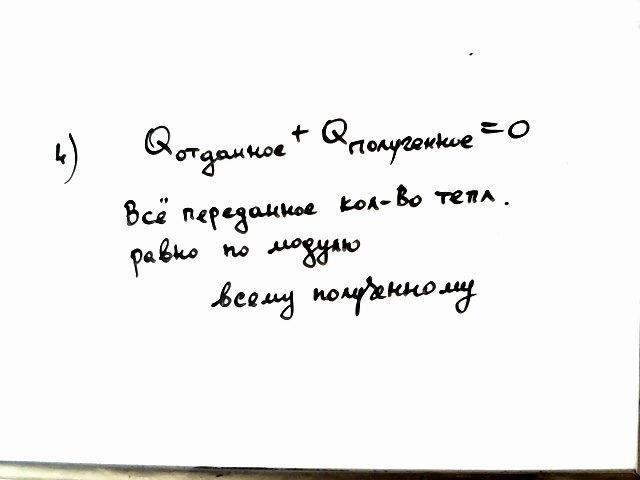 4) Qотданное + Qполученное = 0
Всё переданное кол-во тепл.
равно по модулю
всему полученному